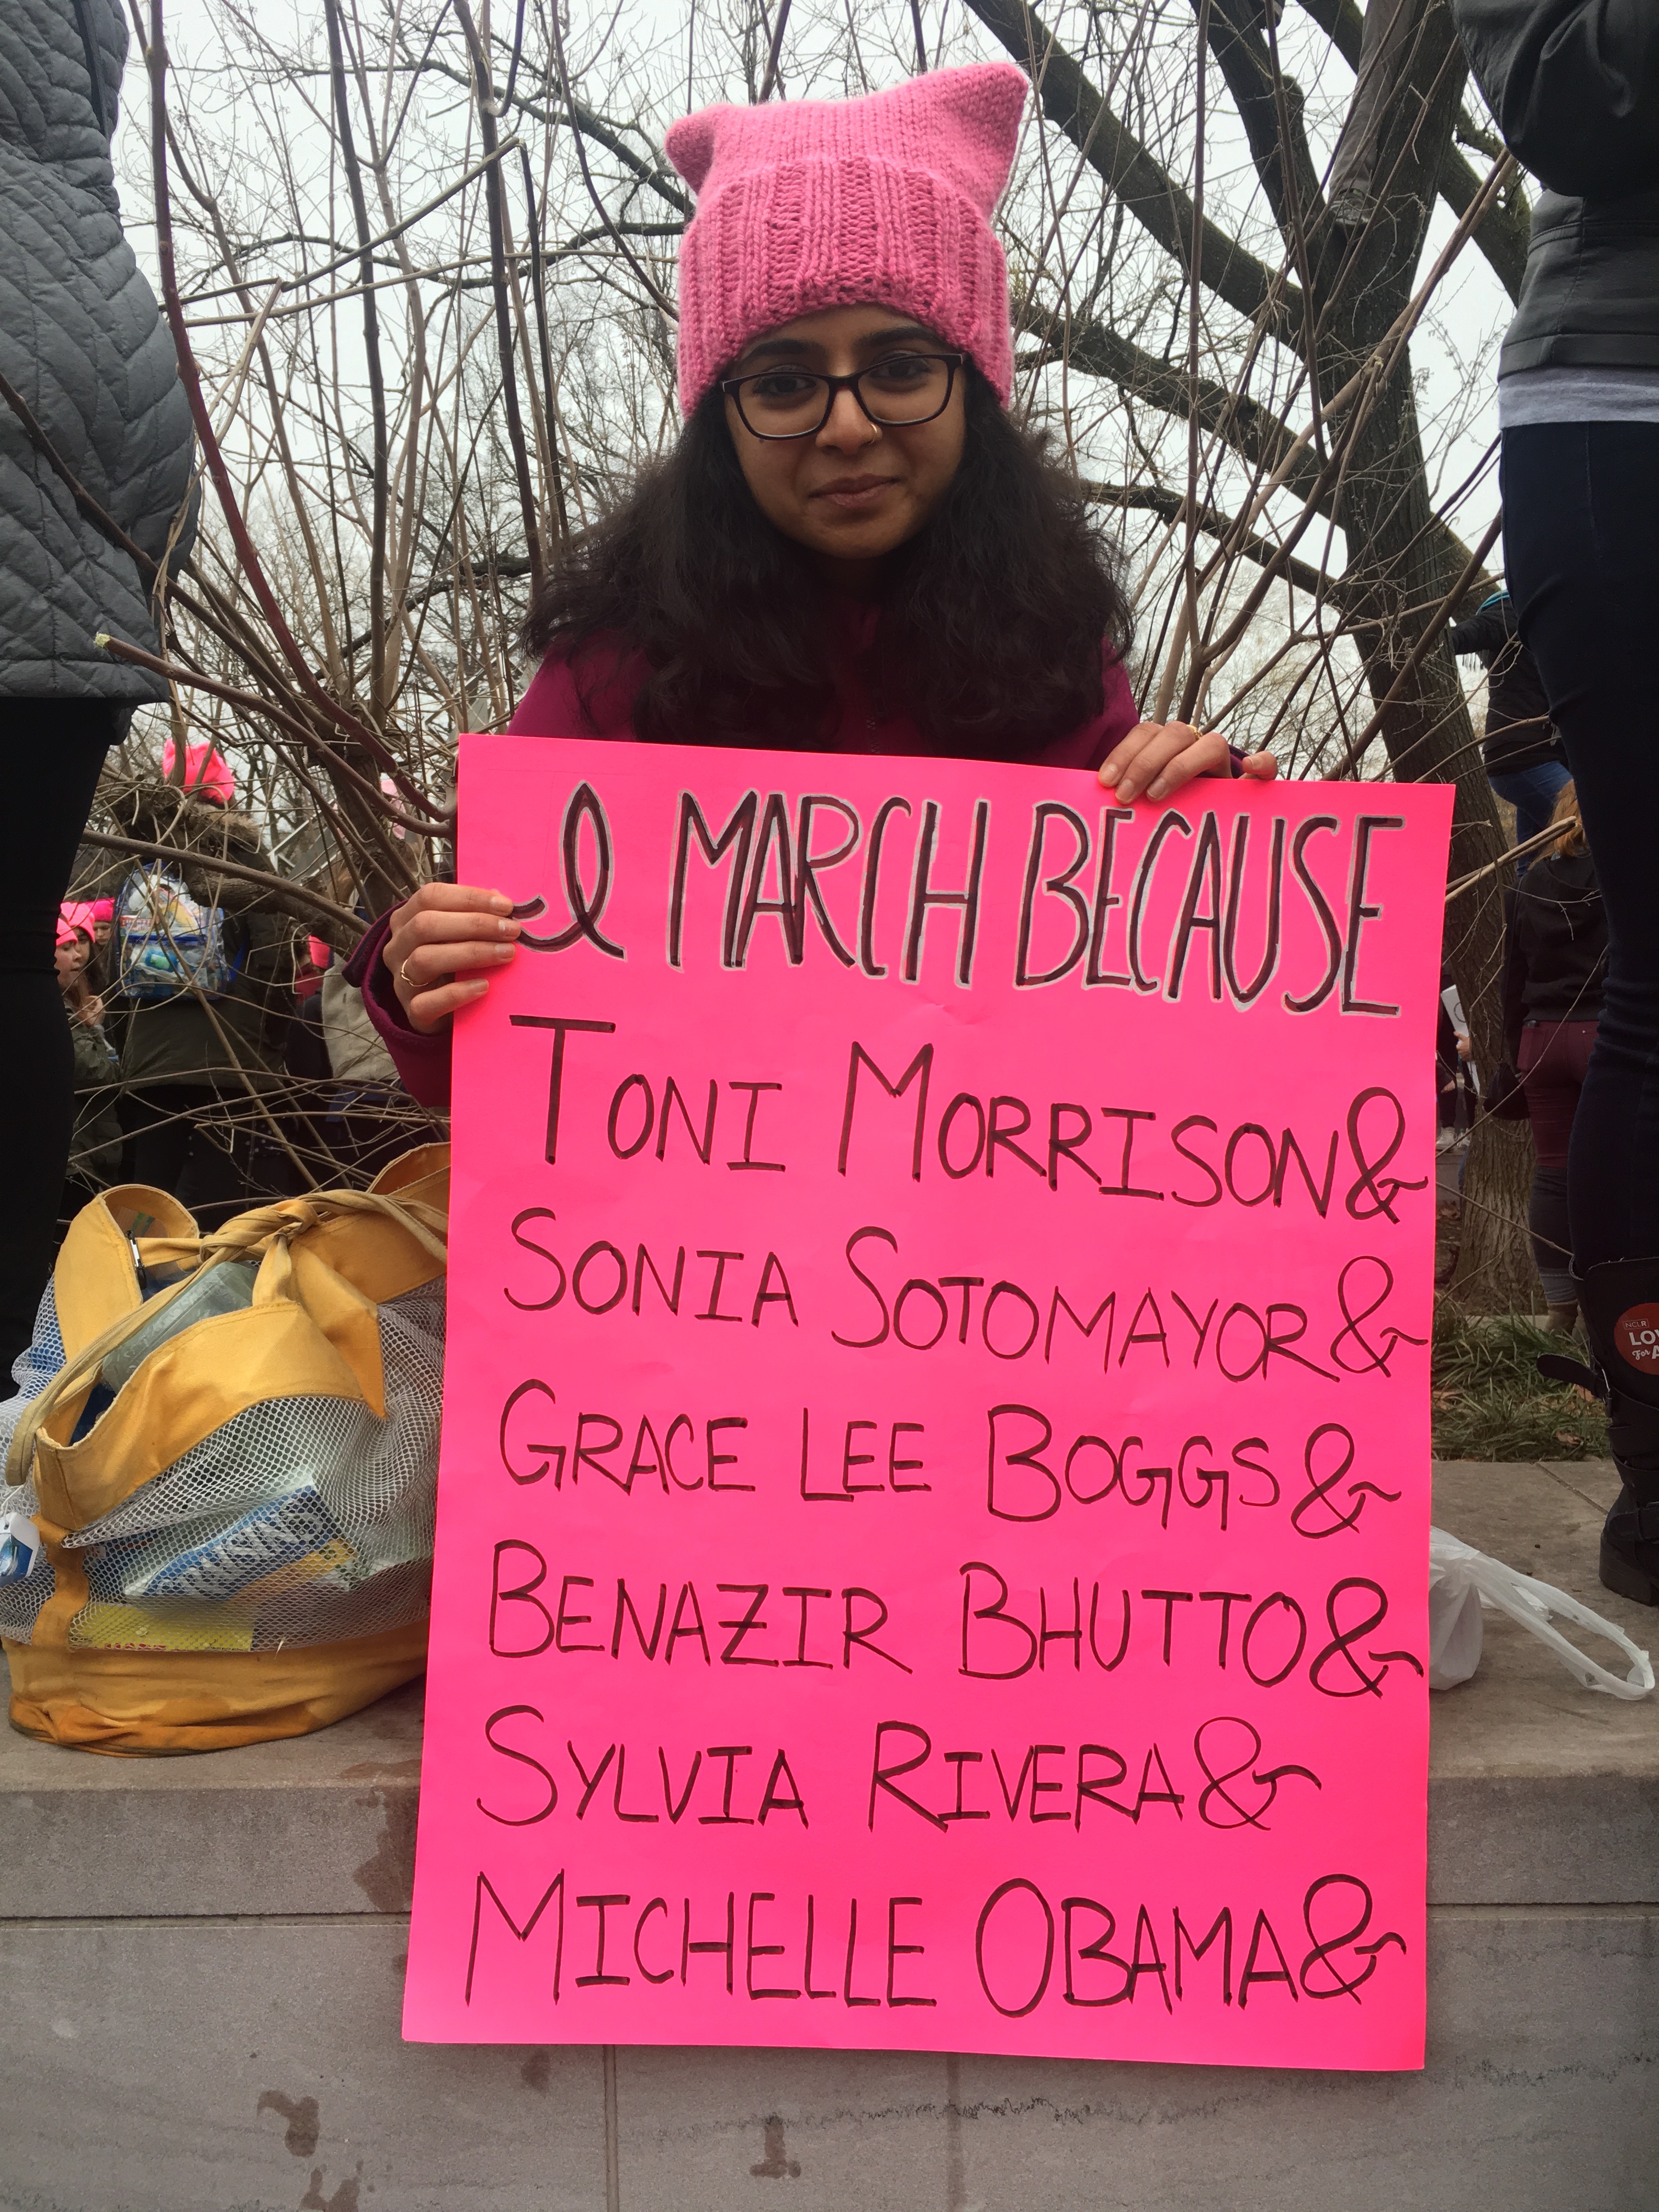 I MARCH BECAUSE
TONI MORRISON &
SONIA SOTOMAYOR &
GRACE LEE BOGGS &
BENAZIR BHUTTO &
SYLVIA RIVERA &
MICHELLE OBAMA &
NCLR
For